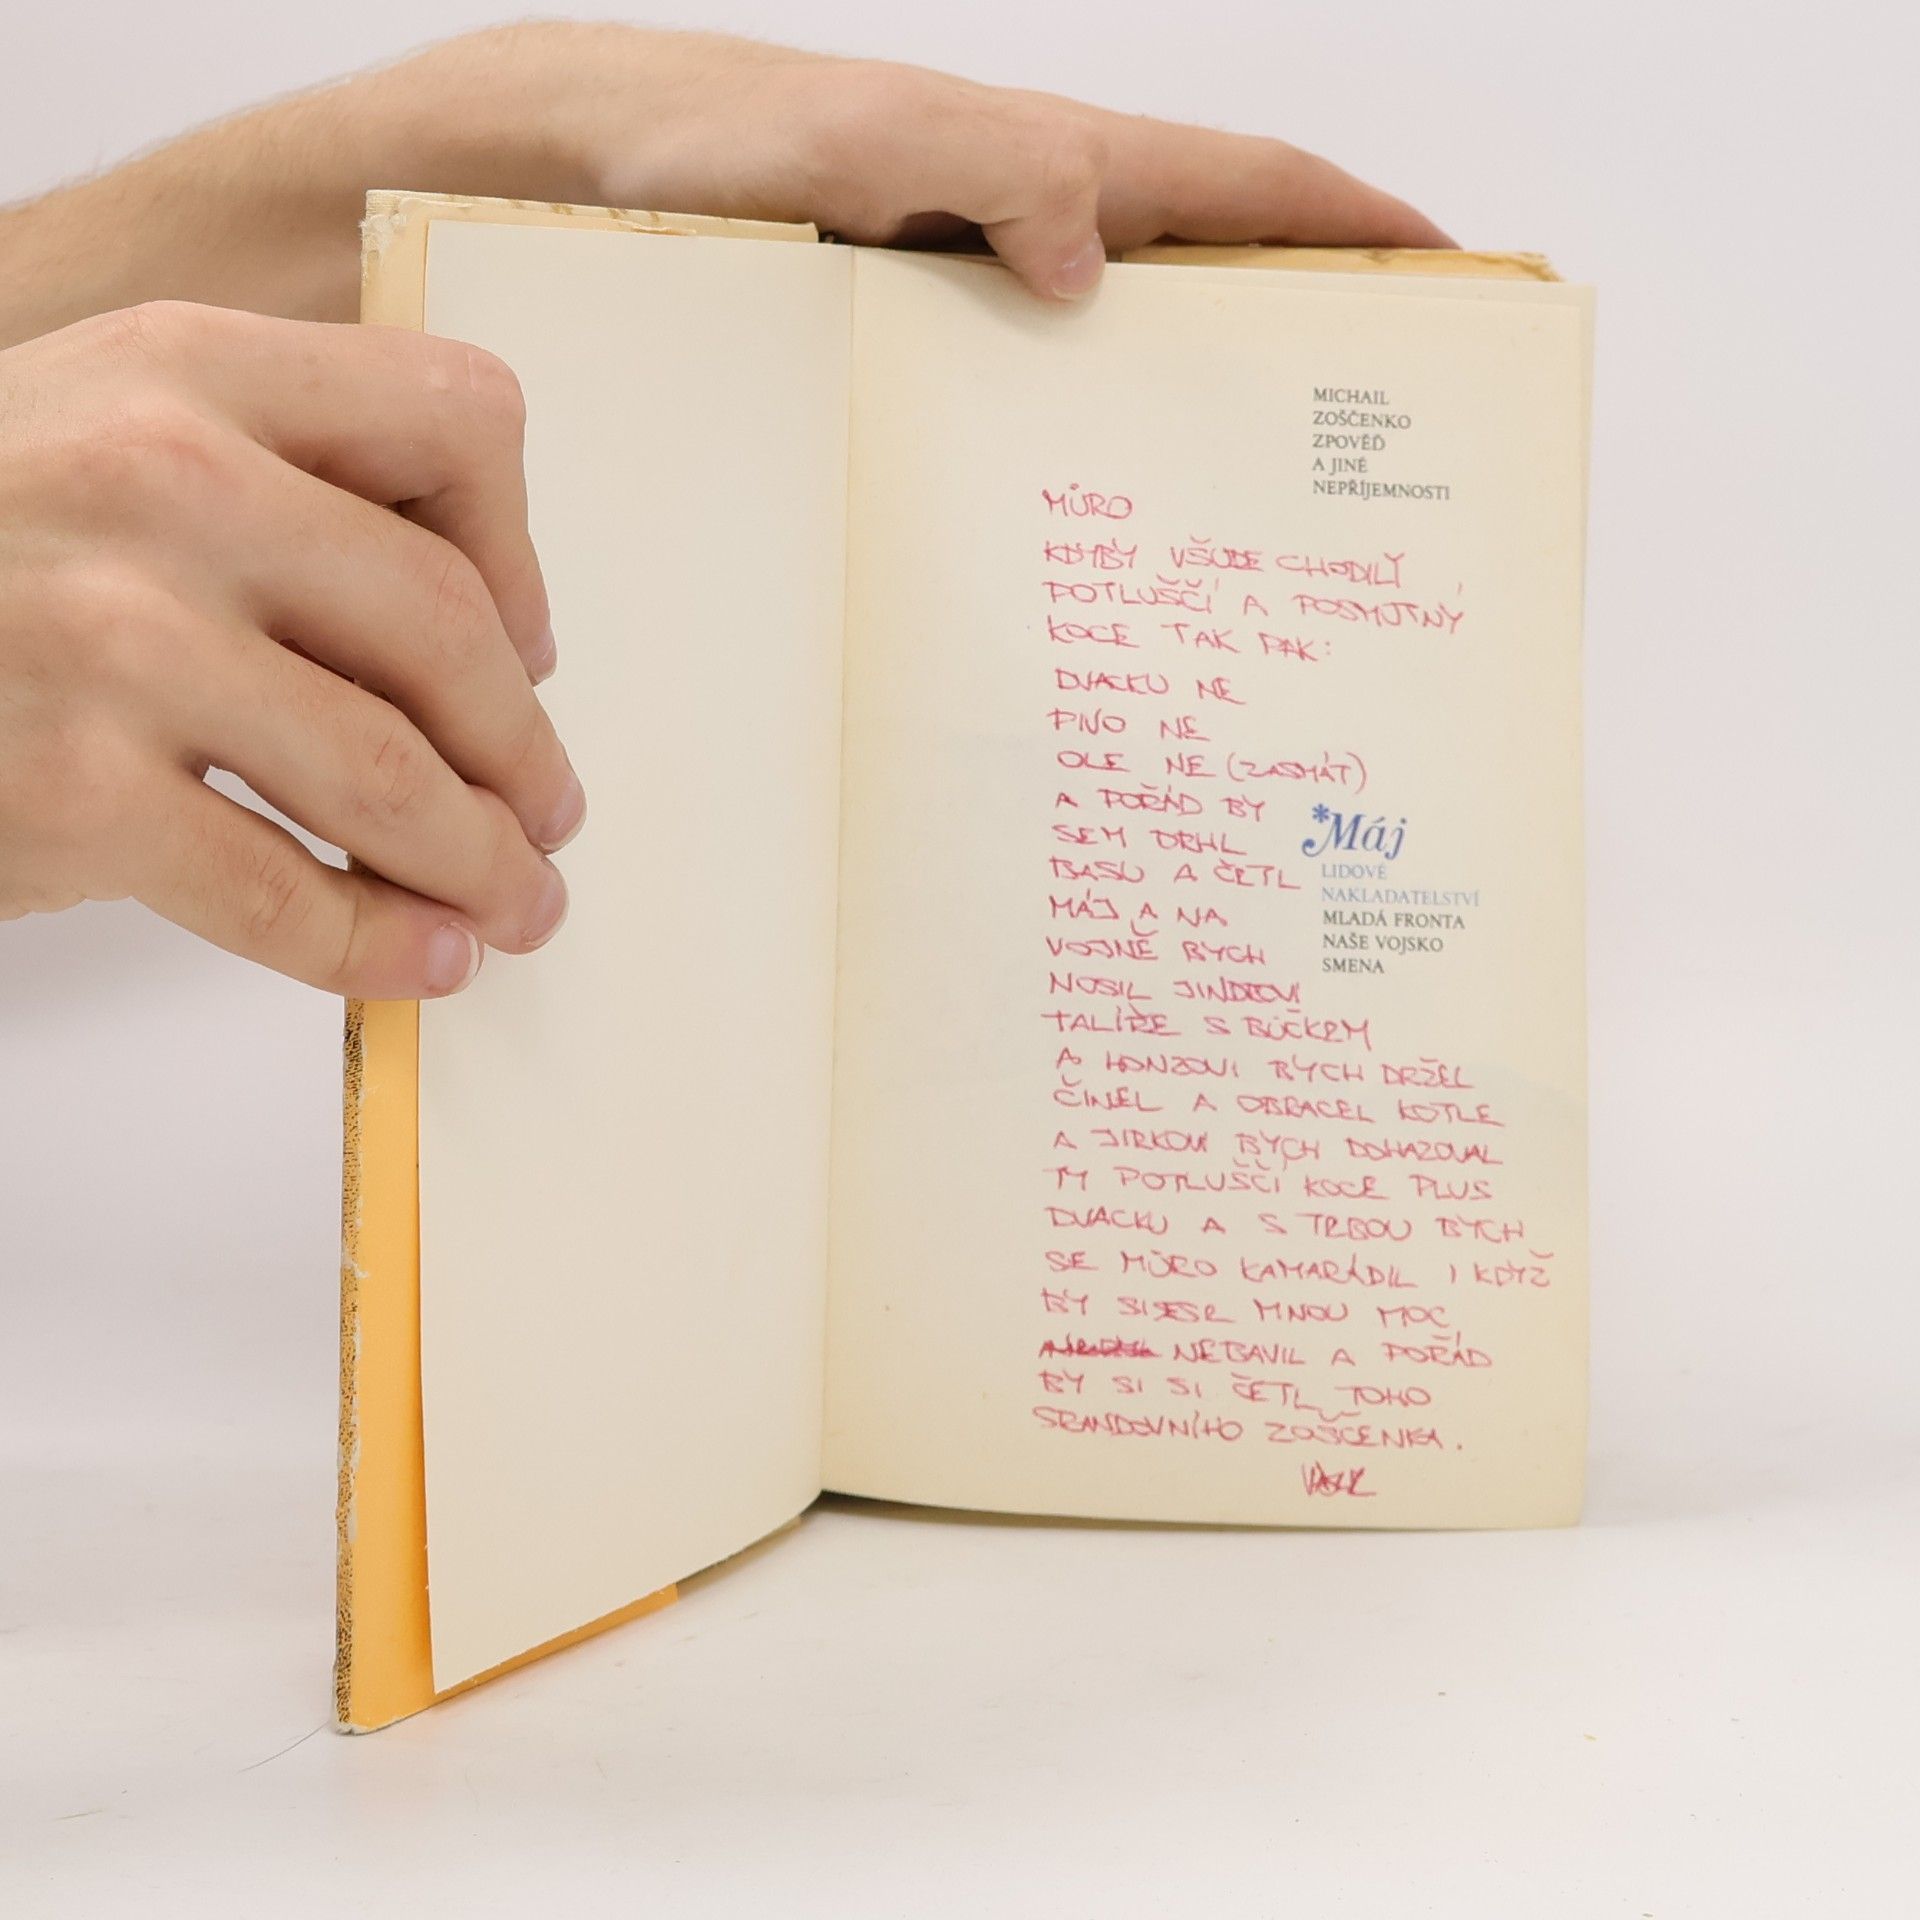 MICHAIL
ZOŠČENKO
ZPOVĚĎ
A JINÉ
NEPŘÍJEMNOSTI
MŮRO
KDYBY VŠUDE CHODILY
POTLUŠČÍ A POSMUTNÝ
KOCE TAK PAK:
DVACKU NE
PIVO NE
OLE NE (ZASMÁT)
A POŘÁD BY
SEM DRHL
BASU A ČETL
MÁJ A NA
VOJNĚ BYCH
NOSIL JINDROVI
TALÍŘE S BŮČKEM
A HONZOVI BYCH DRŽEL
ČINEL A OBRACEL KOTLE
A JIRKOVI BYCH DOHAZOVAL
TY POTLUŠČÍ KOCE PLUS
DVACKU A S TEBOU BYCH
SE MŮRO KAMARÁDIL I KDYŽ
BY SI SE SE MNOU MOC
NEBAVIL A POŘÁD
BY SI SI ČETL TOHO
SRANDOVNÍHO ZOŠČENKA.
*Máj
LIDOVÉ
NAKLADATELSTVÍ
MLADÁ FRONTA
NAŠE VOJSKO
SMENA